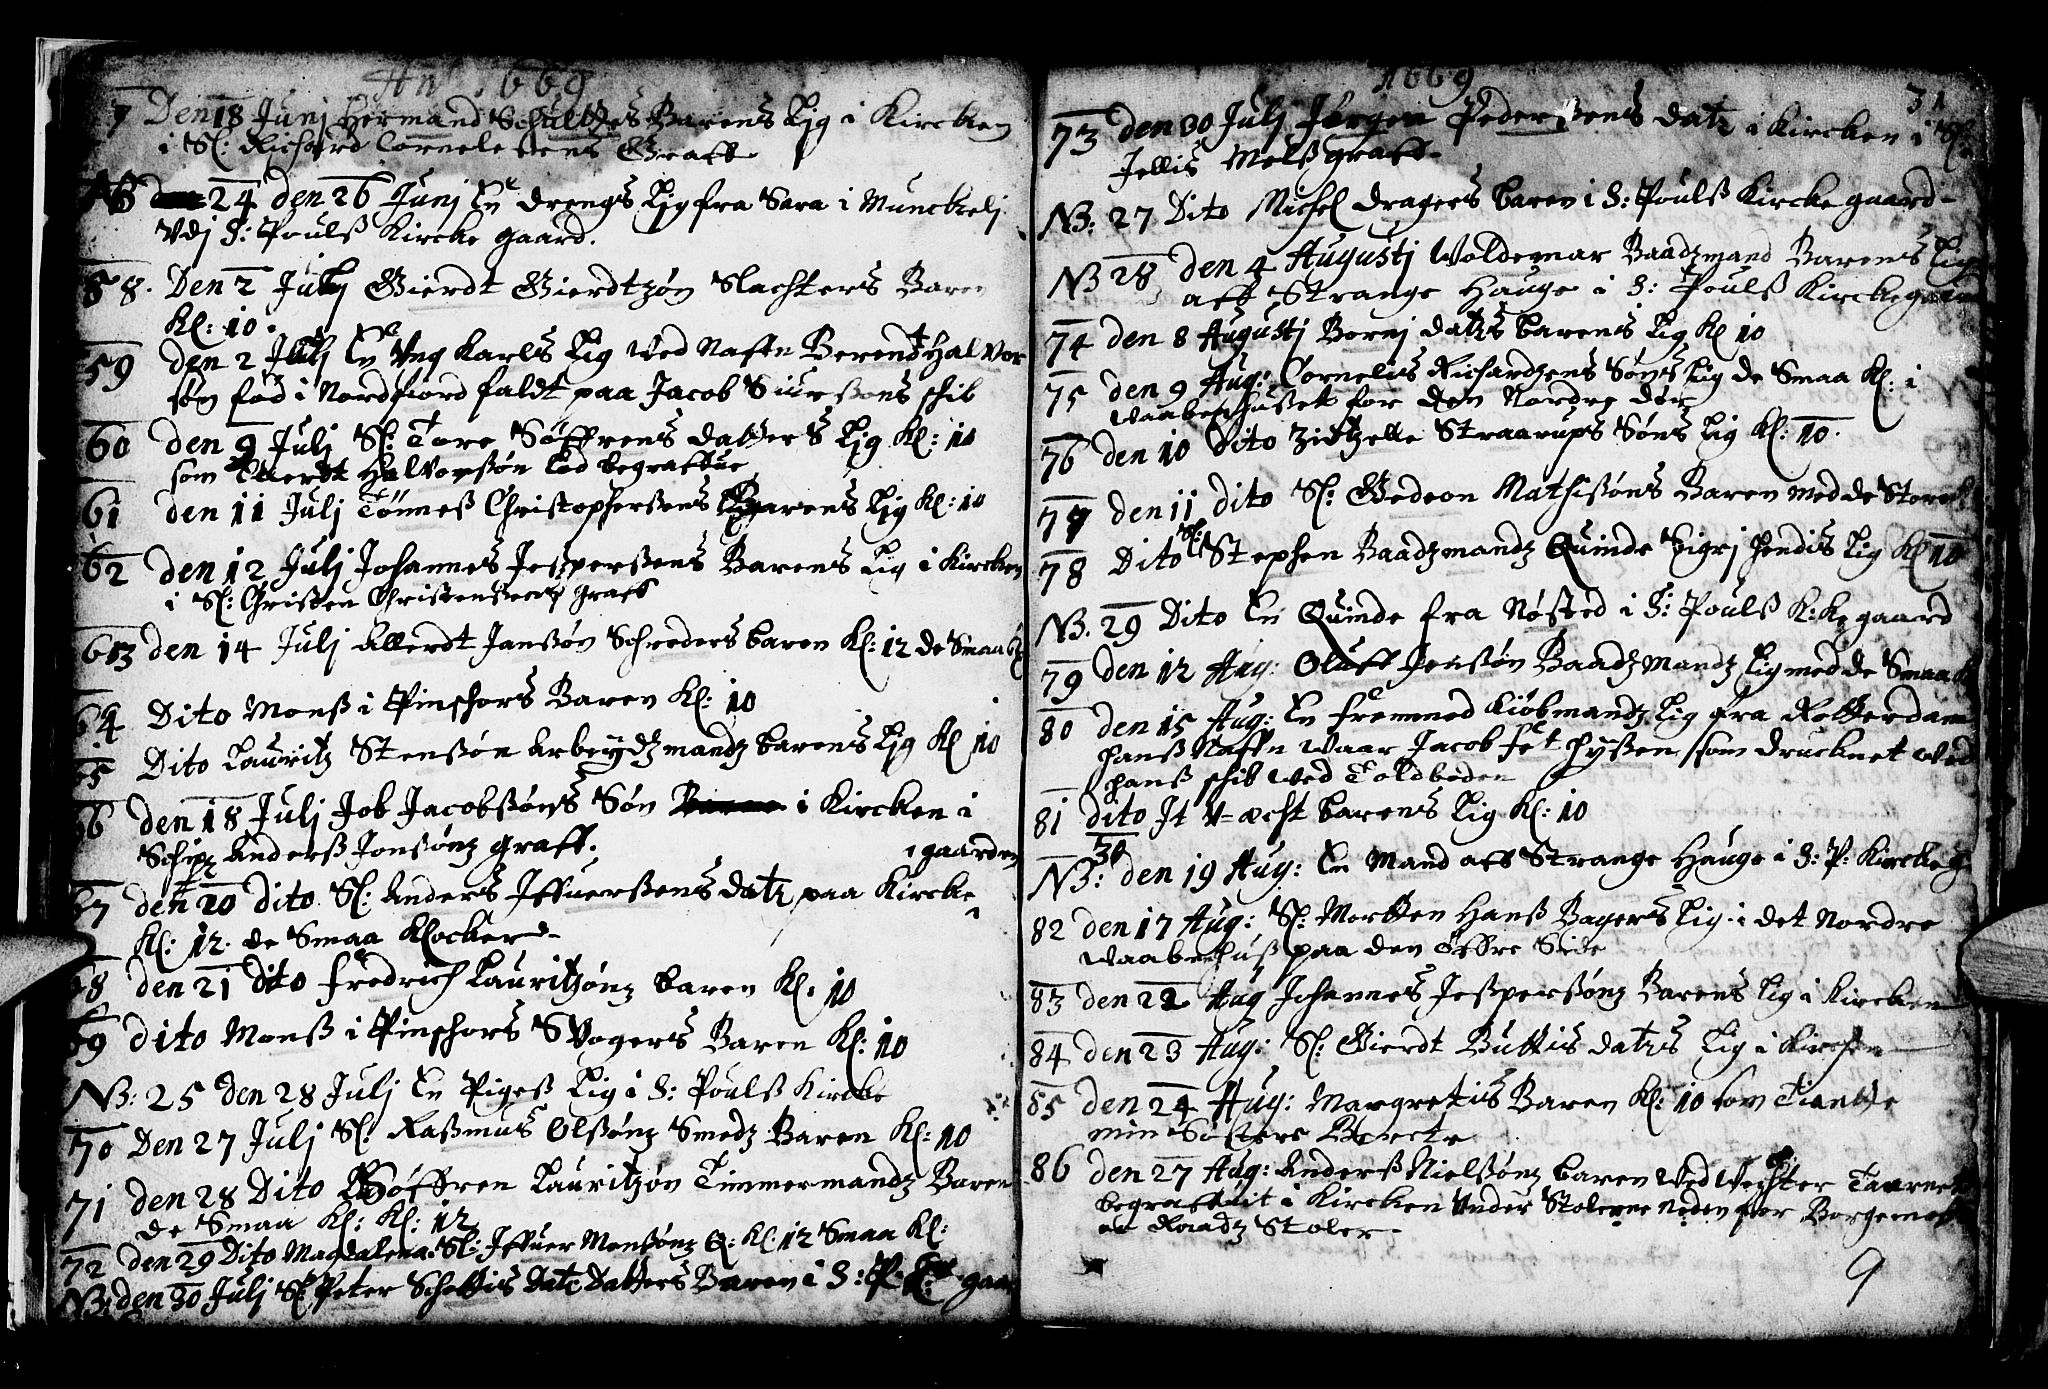 Anno 1669
7 Den 18 Junj Hermand Schultes Barens Lig i Kircken
i Sl: Richard Cornelesens Graff
NB 24 den 26 Junj En drengs Lig fra Sara i Munckelj
Vdj S: Poulß Kircke gaard.
58. Den 2 Julj Gierdt Gierdtzøn Slachters Baren
Kl: 10.
59 den 2 Julj En Vng Karls Lig Ved Naffn Berendt Halvor
søn fød i Nordfiord faldt paa Jacob Siurßøns schib
60 den 9 Julj Sl: Tore Söffrens datters Lig Kl: 10
som Halvorßøn lod begraffue
61 den 11 Julj Tönneß Christophersens Barens Lig Kl: 10
62 den 12 Julj Johannes Jeßperßens Barens Lig i Kircken
i Sl: Christen Christensens Graff
63 den 14 Julj Allerdt Janßøn Schreders baren Kl: 12 de Smaa Kl
64 Dito Monß i Pinshors Baren Kl: 10
65 Dito Lauritz Stensøn Arbeydzmandz barens Lig Kl 10
66 den 18 Julj Job Jacobßøns Søn i Kircken i
Schipr Anderß Jonsønz graff.
67 den 20 dito Sl: Anders Iffuerßens datr paa Kircke gaarden
Kl: 12. de Smaa Klocker
68 den 21 dito fredrich Lauritzønz baren Kl: 10
69 dito Monß i Pinshors SVogers Baren Kl: 10
NB: 25 den 28 Julj En Pigeß Lig i S: Poulß Kircke
70 Den 27 Julj Sl: Raßmus Olßønz Smedz Baren Kl: 10
71 den 28 Dito Söffren Lauritzøn Timmermandz Baren
de Smaa Kl: Kl: 12
72 den 29 Dito Magdalena Sl: Iffuer Monßønz Q: Kl: 12 Smaa Kl:
NB: den 30 Julj Sl Peter Schottis Datters Baren i S: P: K: gaar
1669
31
73 den 30 Julj Jørgen Pederßens datr i Kircken i Sl:
Jellis Melß graff
NB: 27 Dito Michel dragers baren i S: Poulß Kircke gaard
NB 28 den 4 Augustj Woldemar Baadzmand Barens Lig
aff Strange Hauge i S: Poulß Kirckegaard
74 den 8 Augustj Bernj datrs barens Lig Kl 10
75 den 9 Aug: Cornelis Richardzens Søns Lig de Smaa Kl: i
Waabenhuset for den Nordre dør
76 den 10 Dito Zidtzelle Straarups Søns Lig Kl: 10.
77 den 11 dito Sl: Gedeon Mathisøns Baren med de Store Kl
78 Dito Sl: Stephen Baadzmandz Quinde Sigrj hendis Lig Kl 10
NB. 29 Dito En Quinde fra Nøsted i S: Poulß K:ke gaard
79 den 12 Aug: Oluff Jensøn Baadzmandz Lig med de Smaa Kl
80 den 15 Aug: En fremmed Kiøbmandz Lig fra Rotterdam
hanß Naffn Waar Jacob som drucknet Ved
hanß schib Ved Toldboden
81 dito It V-ächt barens Lig Kl: 10
30
NB: den 19 Aug: En Mand aff Strange Hauge i S: P: Kircke g
82 den 17 Aug: Sl: Morten Hanß Bagers Lig i det Nordre
Waabenhuß paa den Øffre Side
83 den 22 Aug Johannes Jeßpersønz Barens Lig i Kircken
84 den 23 Aug: Sl: Gierdt Buttis datrs Lig i Kircken
85 den 24 Aug: Margretis Baren Kl: 10 som Tiente
min Søsters
86 den 27 Aug: Anderß Nielsønz baren Ved Vechter Taarnet
begraffuit i Kircken Vnder Stolerne neden for Borgemester
oc Raadz Stoler
9